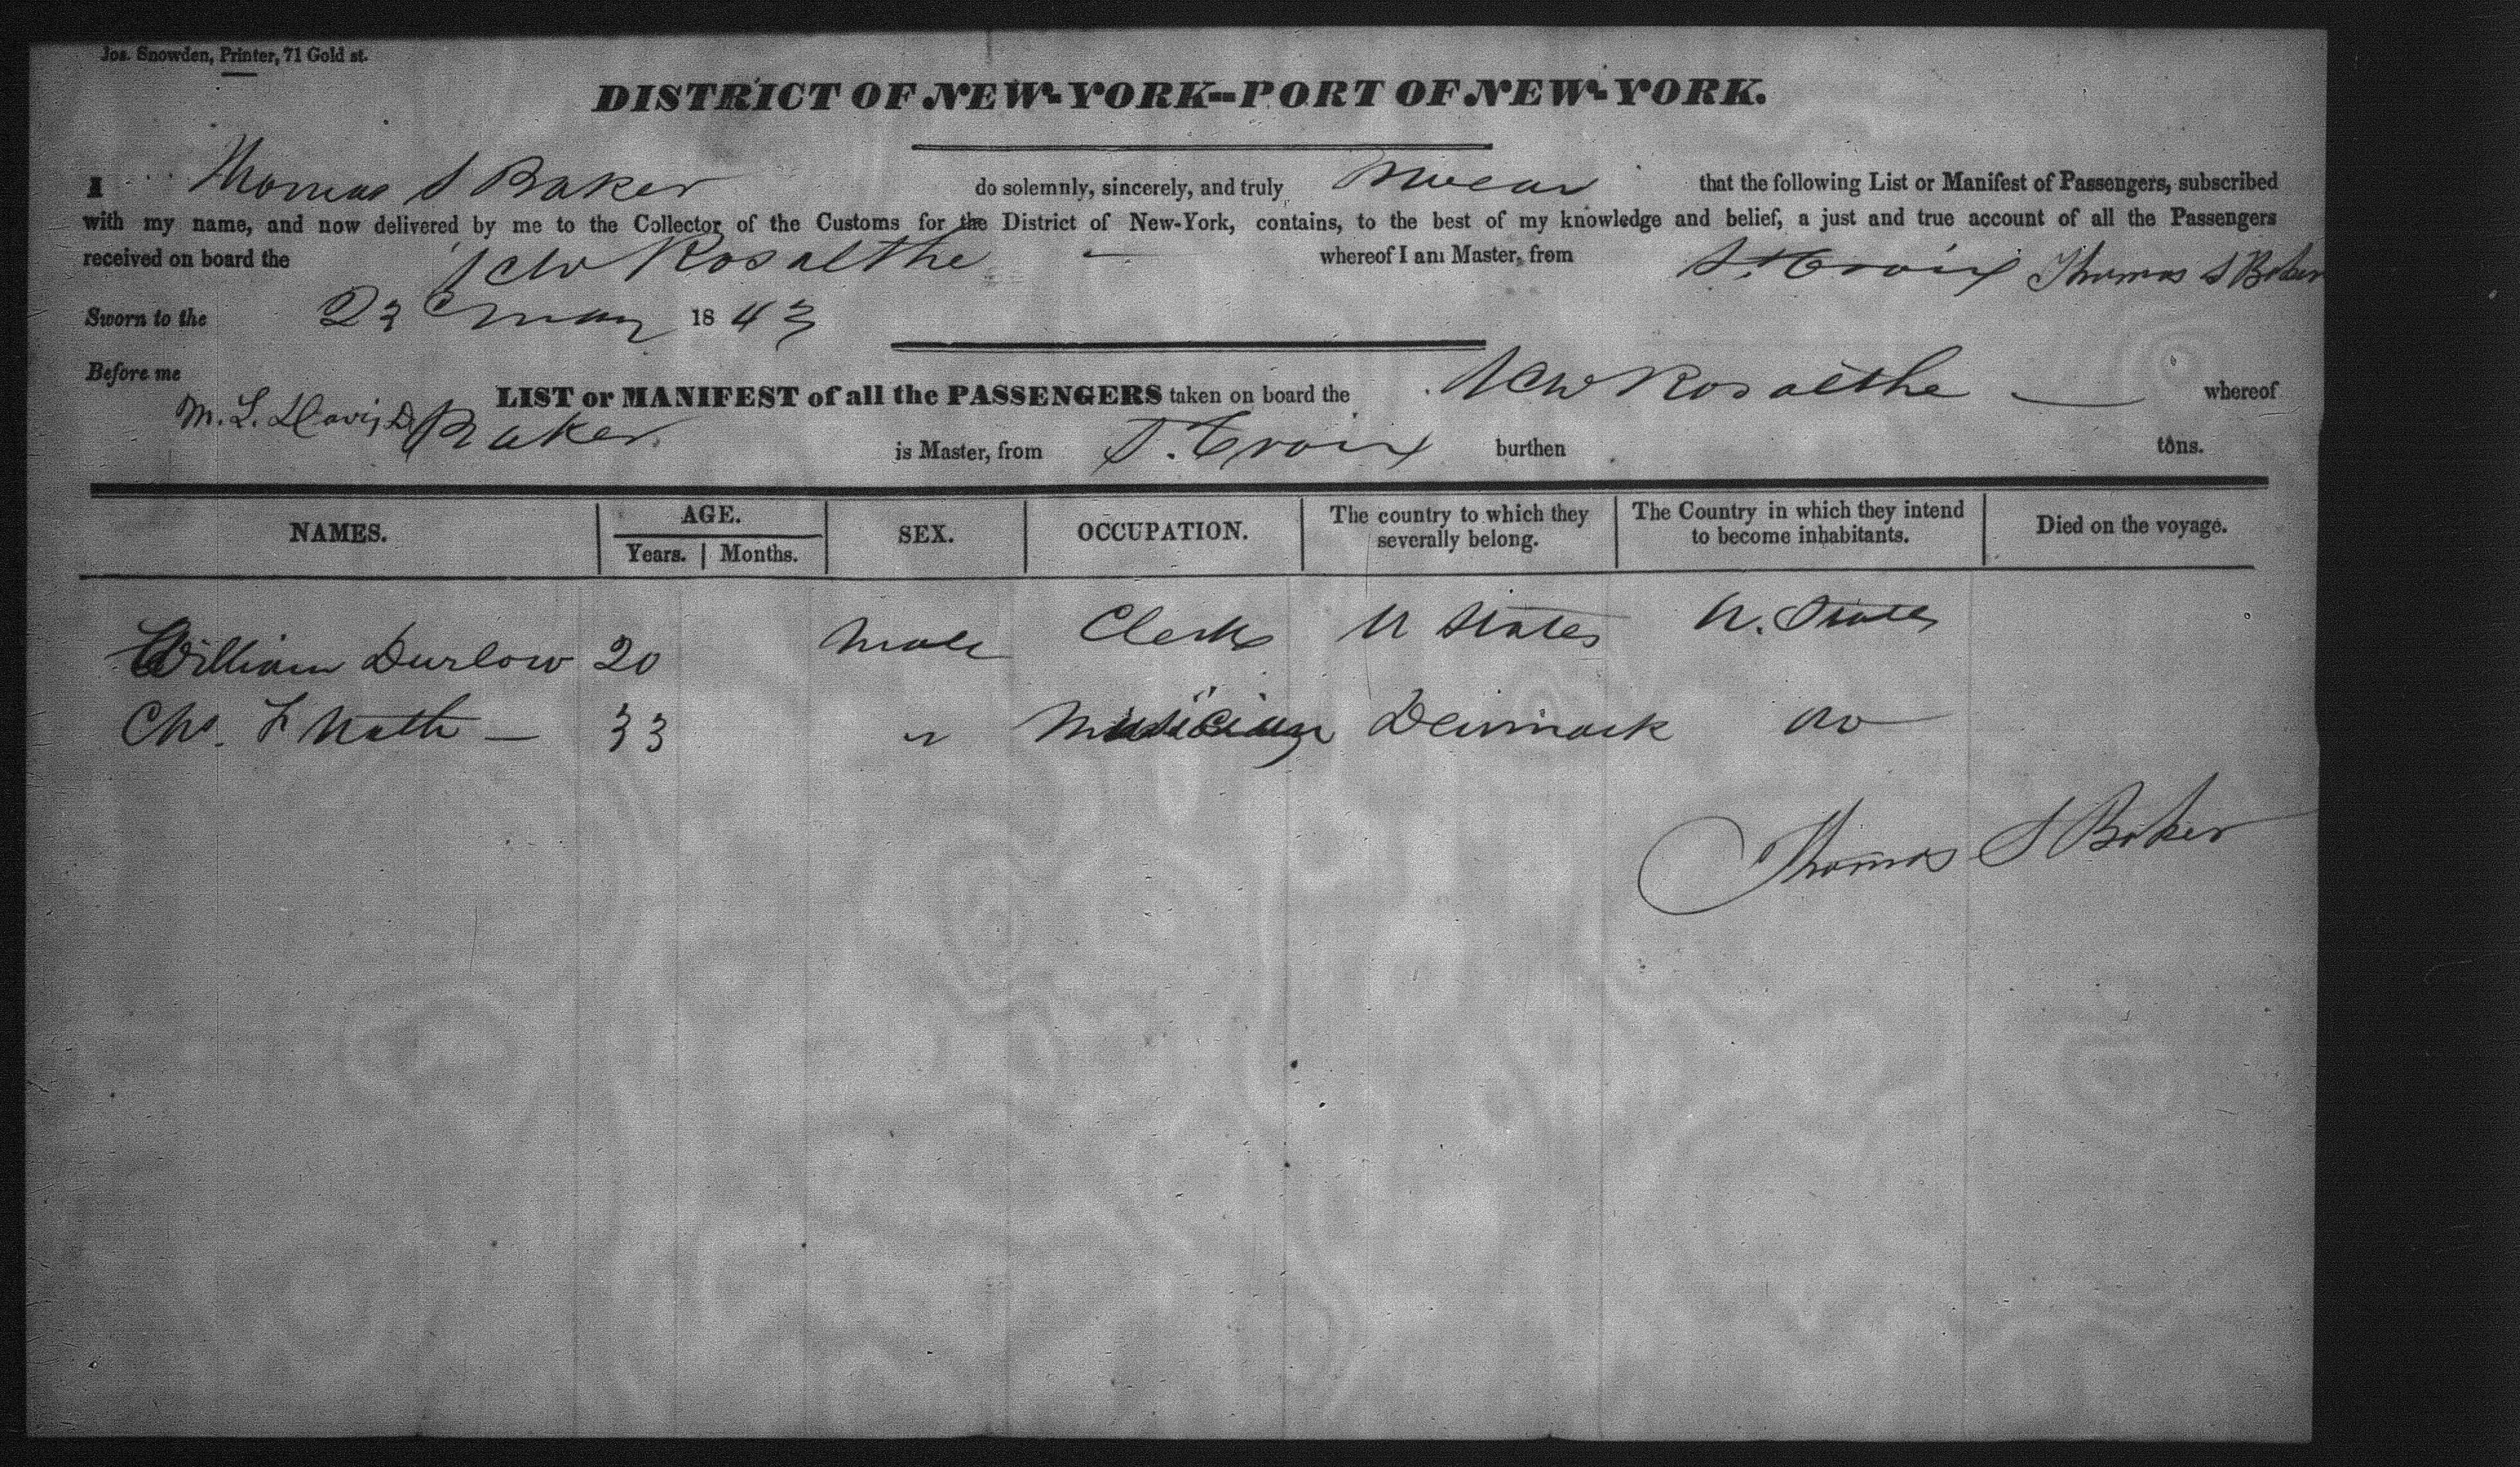 Jos. Snowden, Printer, 71 Gold st.
DISTRICT OF NEW-YORK--PORT OF NEW-YORK.
I Thomas S Baker do solemnly, sincerely, and truly swear that the following List or Manifest of Passengers, subscribed
with my name, and now delivered by me to the Collector of the Customs for the District of New-York, contains, to the best of my knowledge and belief, a just and true account of all the Passengers
received on board the Schr Rosalthe whereof I am Master, from St Croix Thomas S Baker
Sworn to the 23 May 1843
Before me
M. L. Davis, D.
LIST or MANIFEST of all the PASSENGERS taken on board the Schr Rosalthe — whereof
Baker is Master, from St. Croix burthen tons.
NAMES. AGE. SEX. OCCUPATION. The country to which they severally belong. The Country in which they intend to become inhabitants. Died on the voyage.
Years. Months.
William Durlow 20 Male Clerk U States U. States
Chs. F Nath — 33 " Musician Denmark
Thomas S Baker